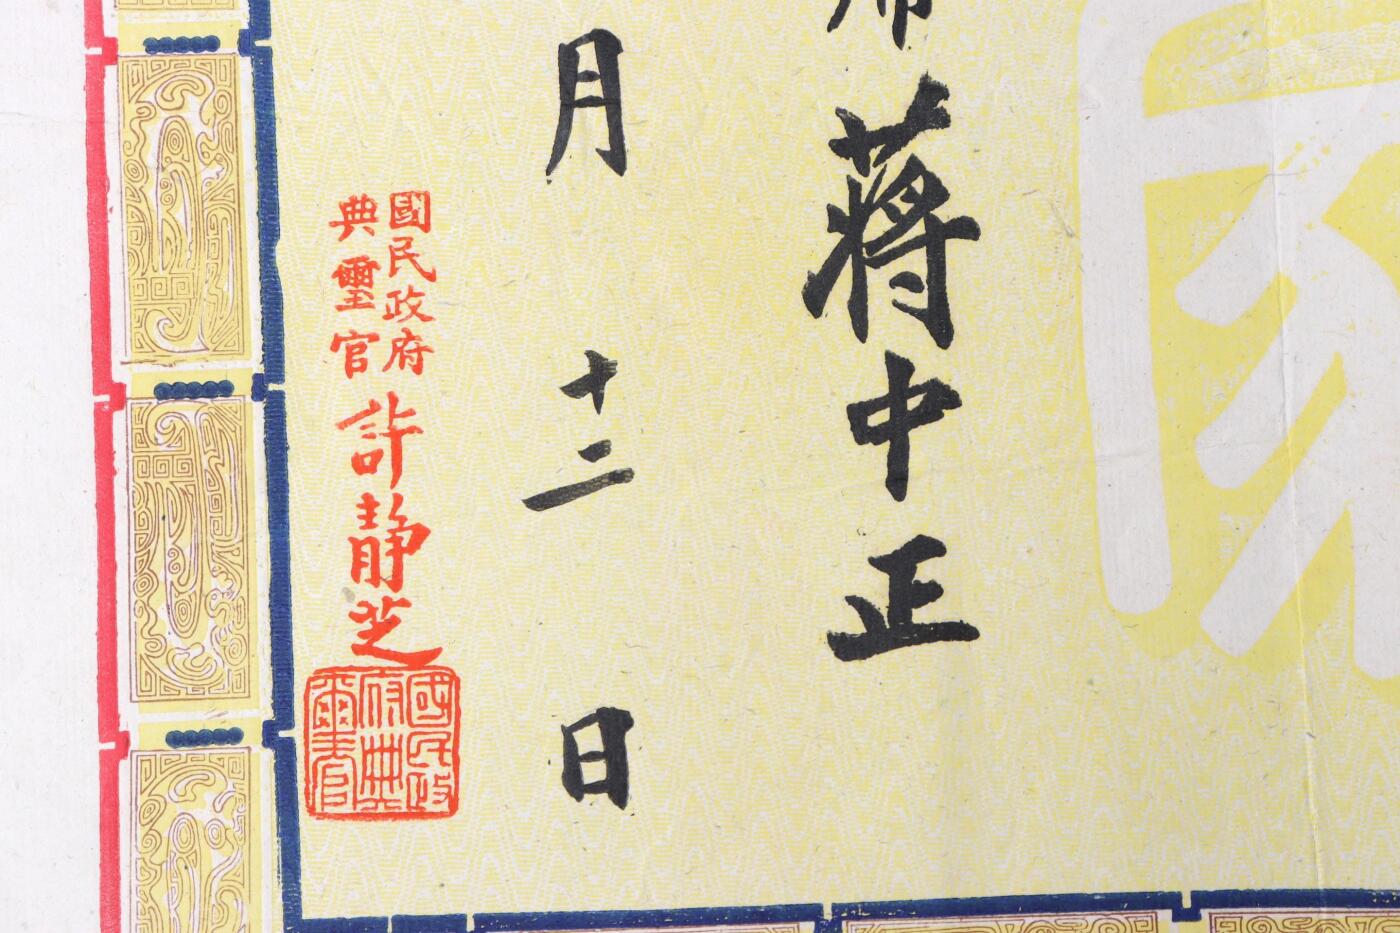 席蔣中正
月十二日
國民政府
典璽官
許靜芝
國民政
府典
璽官